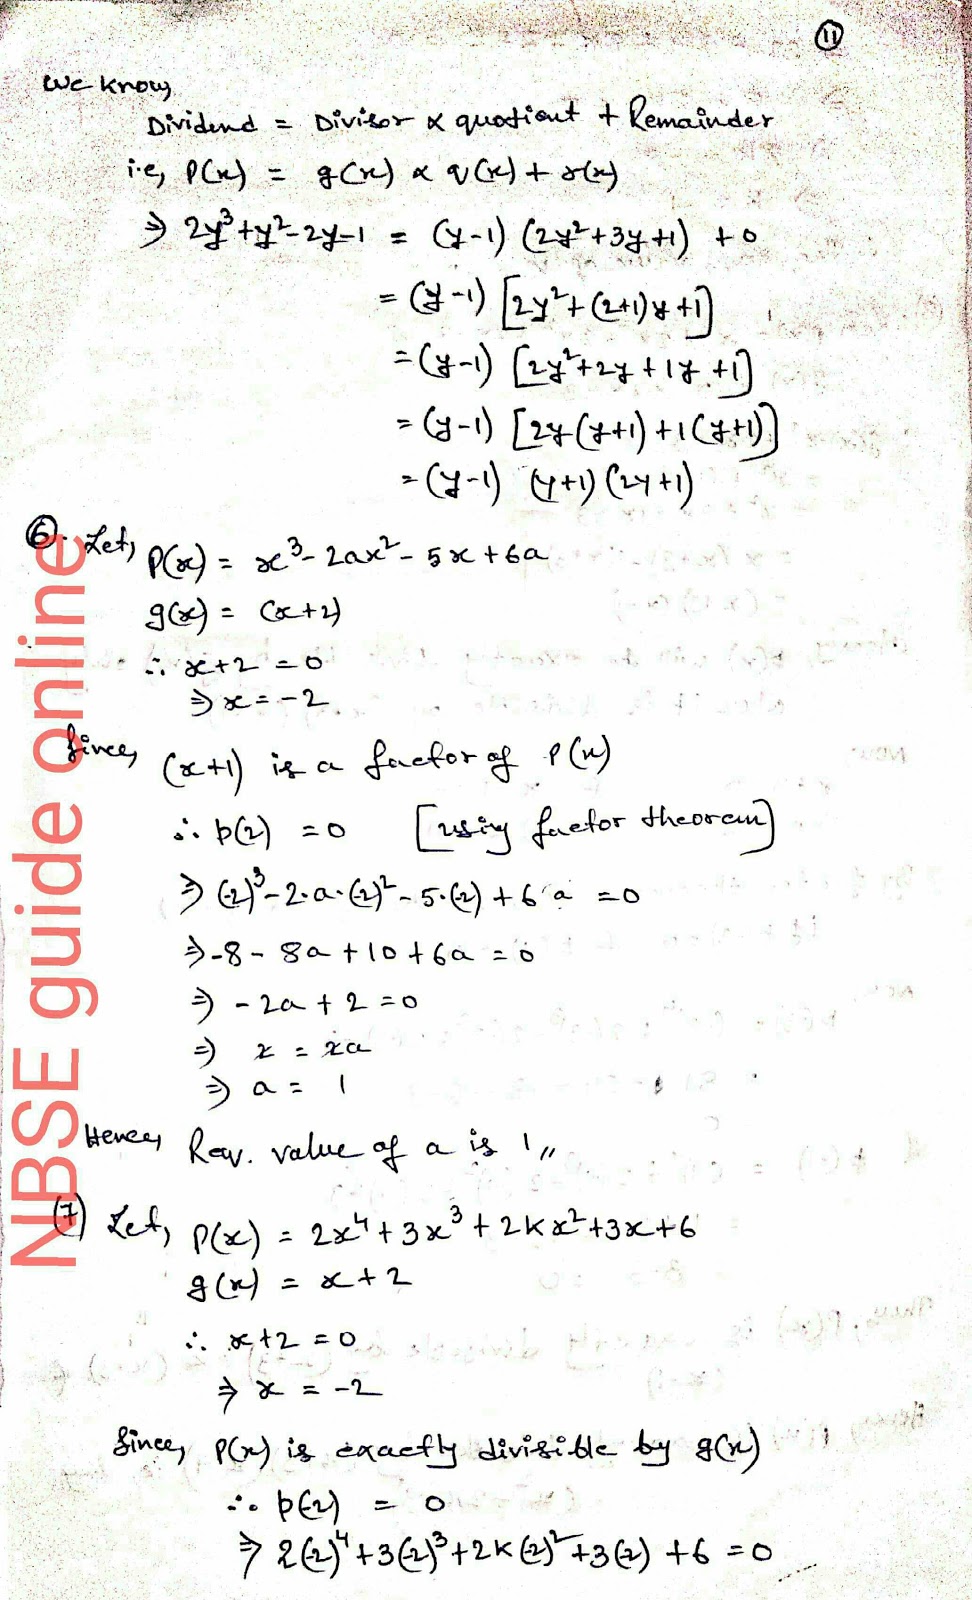 11
We know,
Dividend = Divisor × quotient + Remainder
i.e, P(x) = g(x) × q(x) + r(x)
⇒ 2y³+y²-2y-1 = (y-1) (2y²+3y+1) + 0
= (y-1) [2y²+(2+1)y+1]
= (y-1) [2y²+2y+1y+1]
= (y-1) [2y(y+1)+1(y+1)]
= (y-1) (y+1) (2y+1)
6. Let, P(x) = x³-2ax²-5x+6a
g(x) = (x+2)
∴ x+2 = 0
⇒ x = -2
Since, (x+1) is a factor of P(x)
∴ p(-2) = 0 [using factor theorem]
⇒ (-2)³-2·a·(-2)²-5·(-2)+6·a = 0
⇒ -8-8a+10+6a = 0
⇒ -2a+2 = 0
⇒ 2 = 2a
⇒ a = 1
Hence, Req. value of a is 1,,
(7) Let, P(x) = 2x⁴+3x³+2kx²+3x+6
g(x) = x+2
∴ x+2 = 0
⇒ x = -2
Since, P(x) is exactly divisible by g(x)
∴ p(-2) = 0
⇒ 2(-2)⁴+3(-2)³+2k(-2)²+3(-2)+6 = 0
NBSE guide online